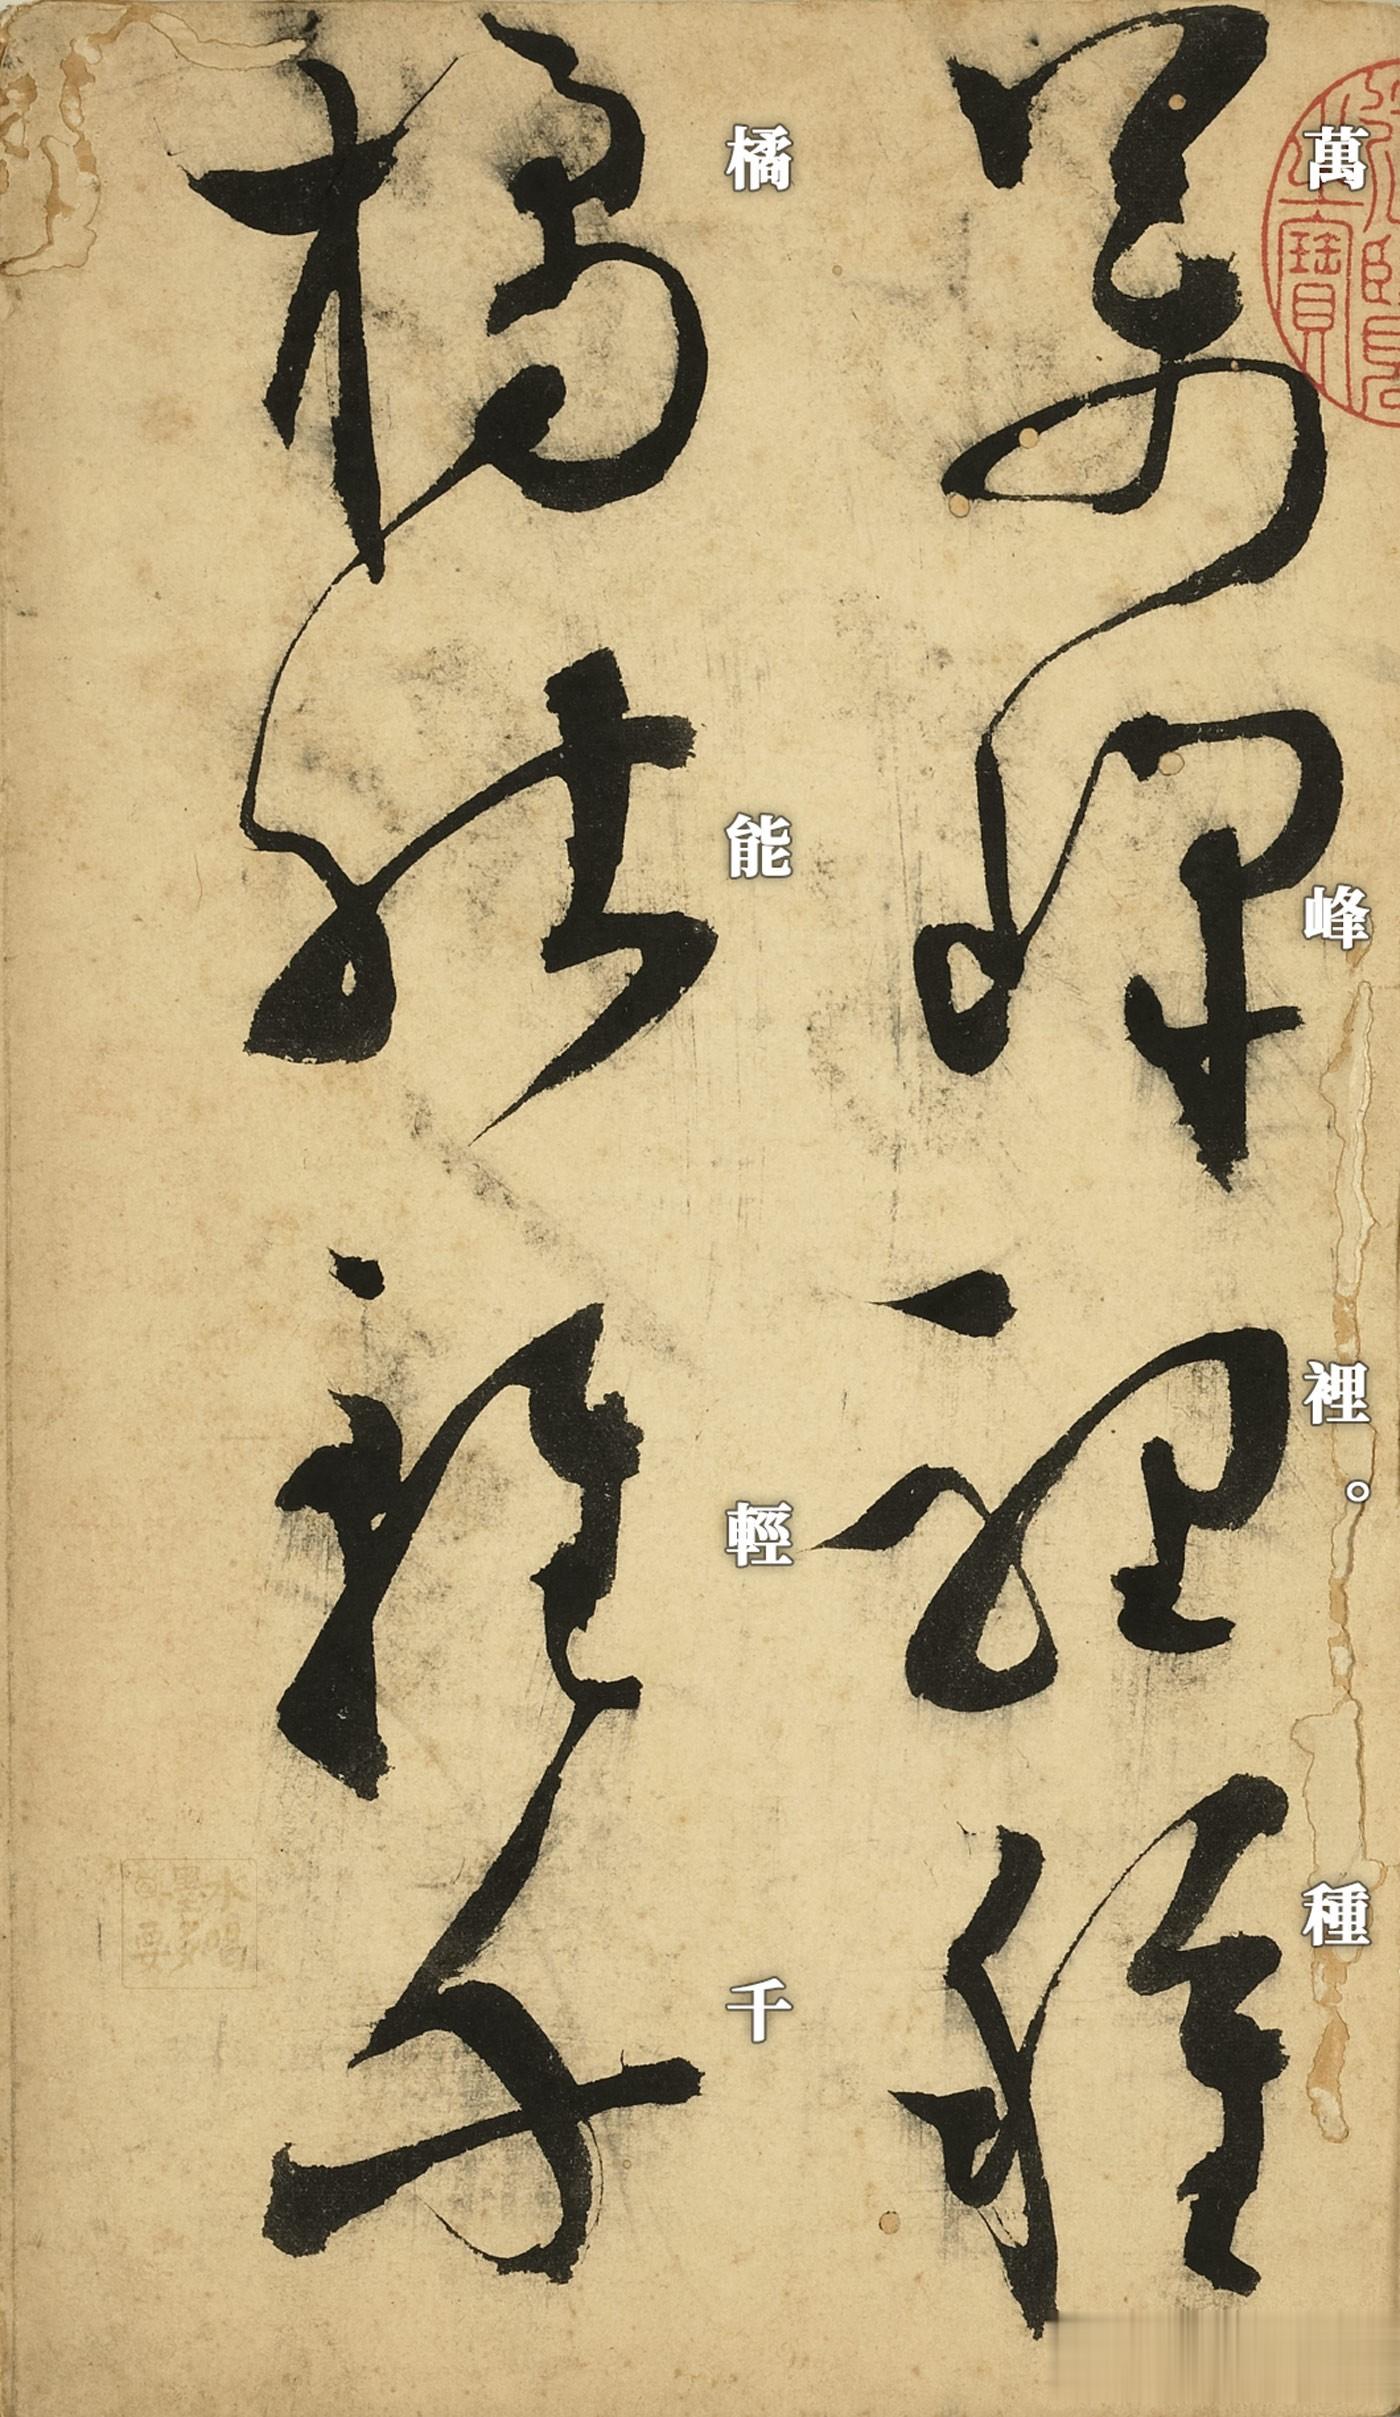 萬峰裡。種
橘能輕千